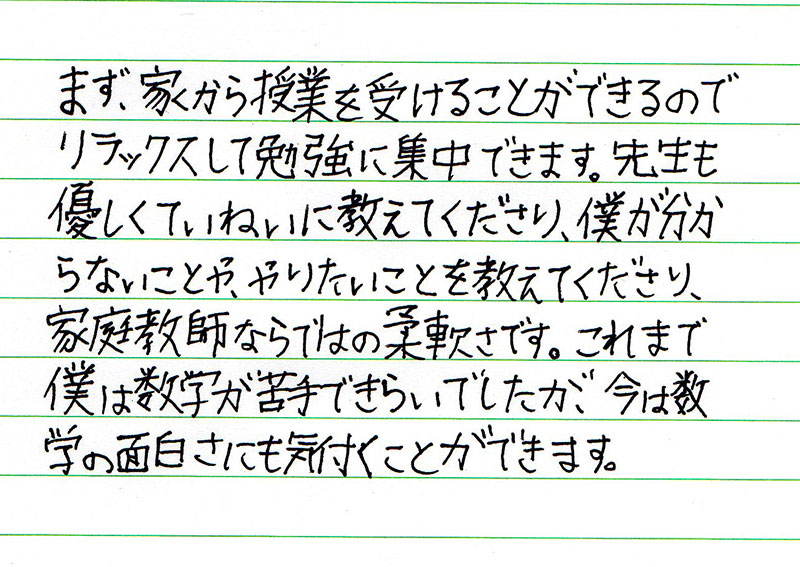 まず、家から授業を受けることができるので
リラックスして勉強に集中できます。先生も
優しくていねいに教えてくださり、僕が分か
らないことや、やりたいことを教えてくださり、
家庭教師ならではの柔軟さです。これまで
僕は数学が苦手できらいでしたが、今は数
学の面白さにも気付くことができます。